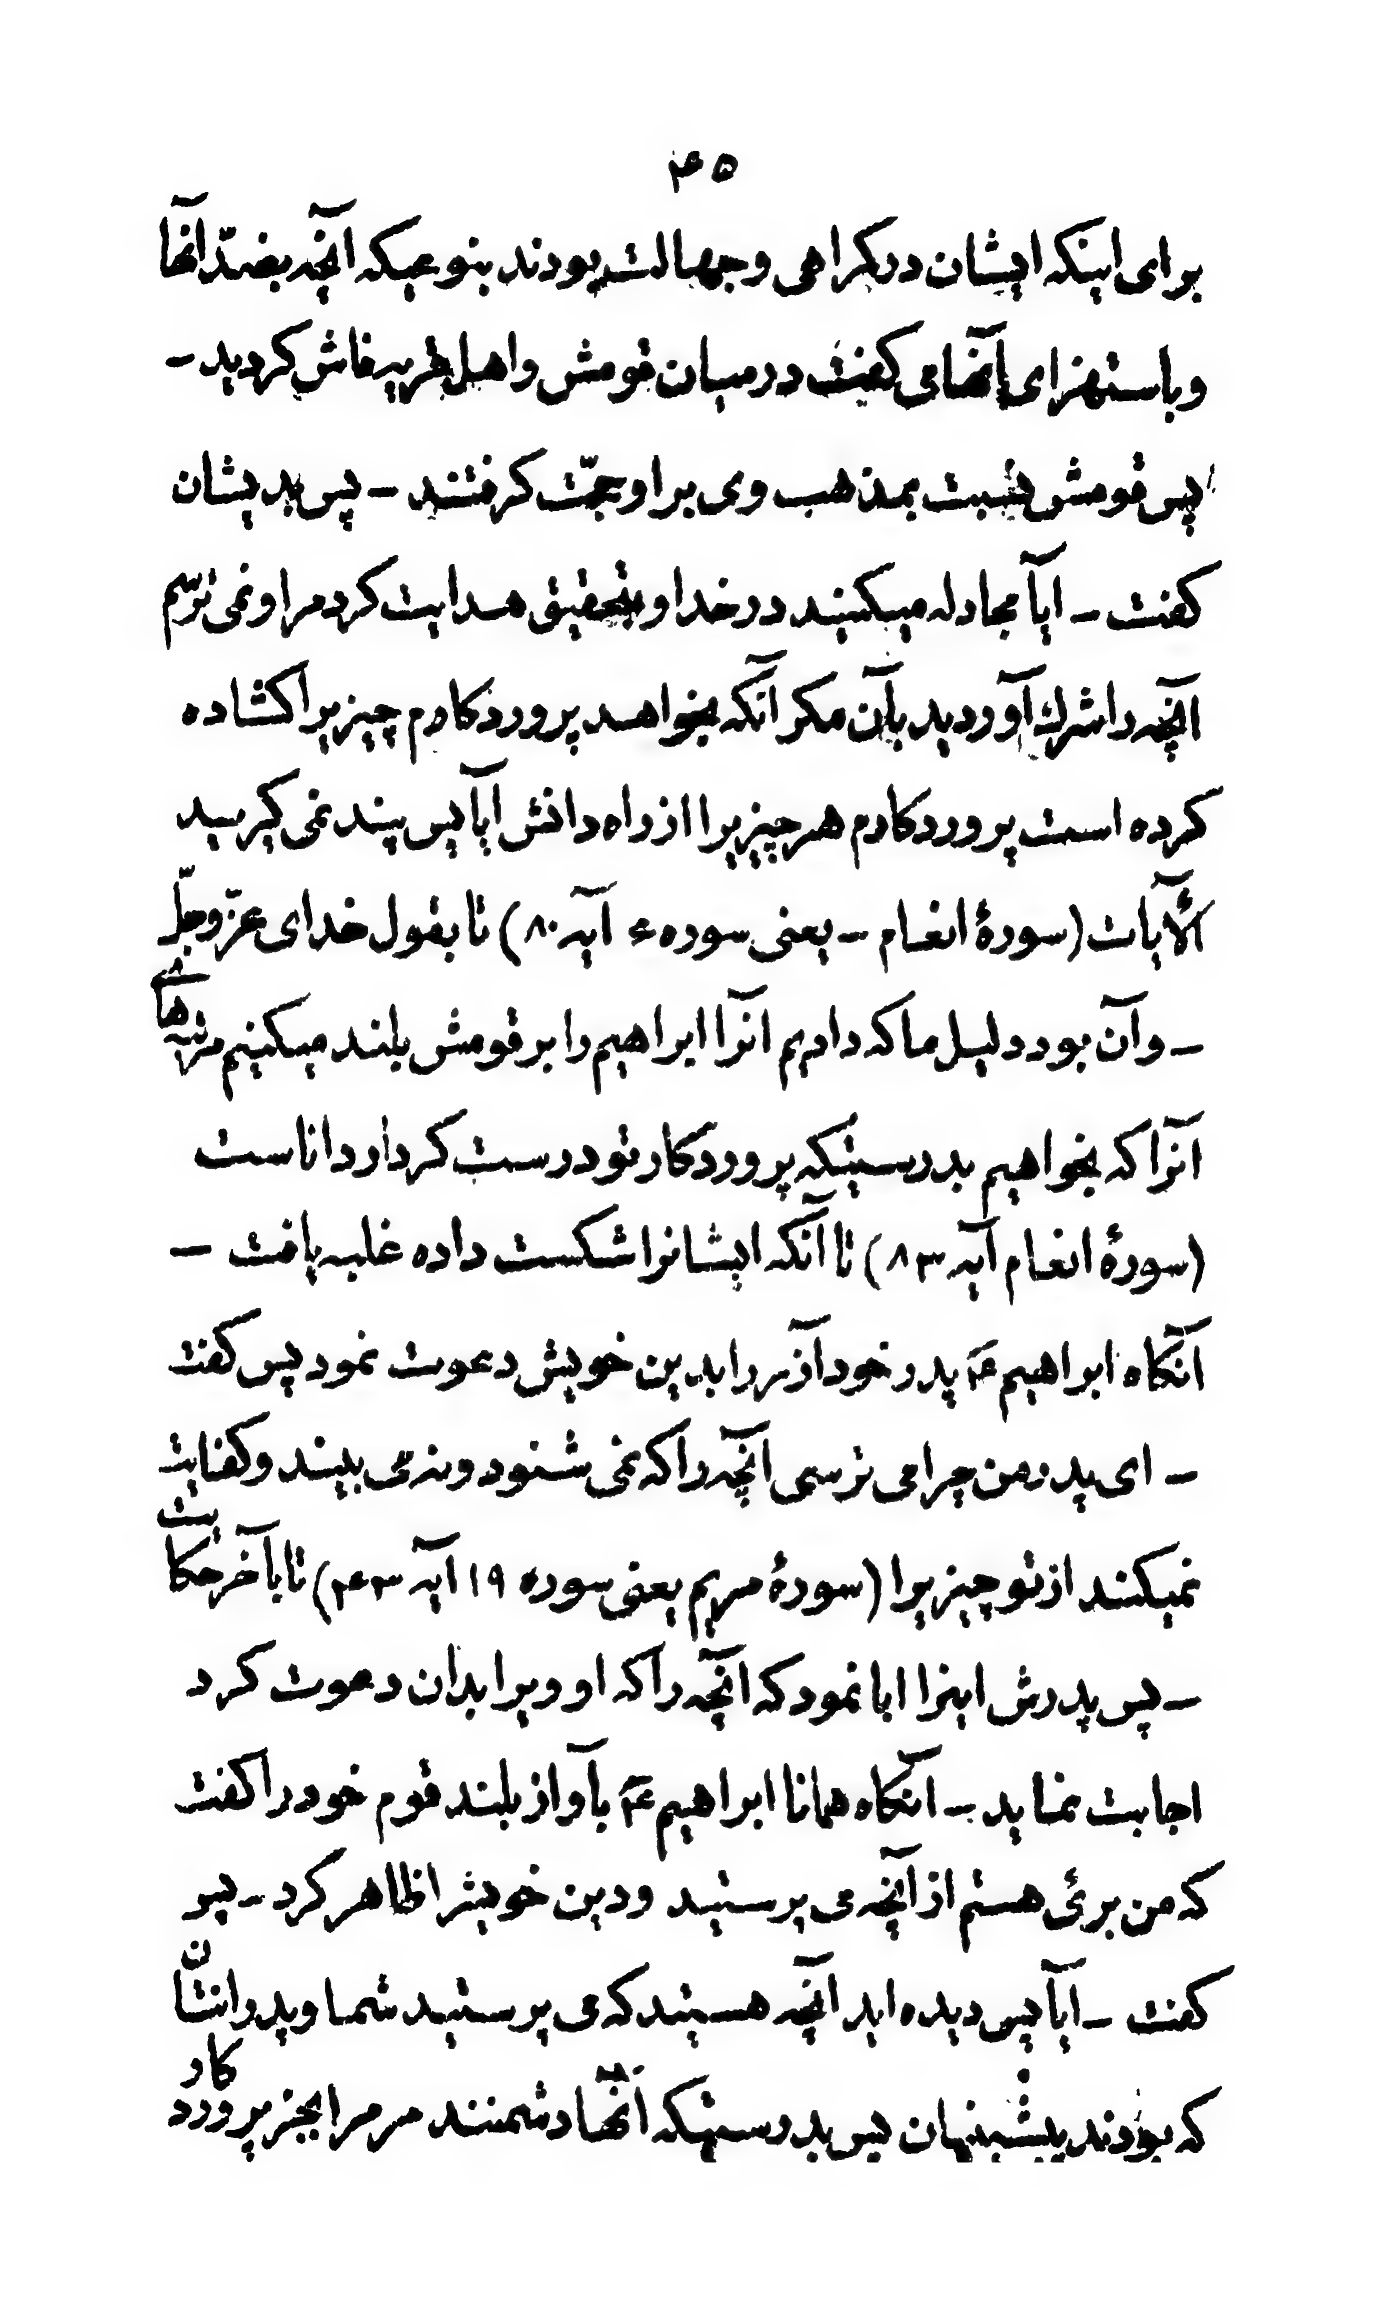 ۴۵
برای اینکه ایشان در کمراهی و جهالت بودند بنوعیکه آنچه بضدّ آنها
و باستهزای آنها می کفت در میان قومش و اهل قریه فاش کردید –
پس قومش نسبت بمذهب وی بر او حجّت کرفتند – پس بدیشان
کفت – ایآ مجادله میکنید در خدا و بتحقیق هدایت کرد مرا و نمی ترسم
آنچه را شرك آوردید بآن مکر آنکه بخواهد پروردکارم چیزیرا کشاده
کرده است پروردکارم هر چیزیرا از راه دانش ایآ پس پند نمی کیرید
الآیات (سورهٔ انعام – یعنی سوره ۶ آیه ۸۰) تا بقول خدای عزّوجلّ
– و آن بود دلیل ما که دادیم آنرا ابراهیم را بر قومش بلند میکنیم مرتبه های
آنرا که بخواهیم بدرستیکه پروردکار تو درست کردار داناست
(سورهٔ انعام آیه ۸۳) تا آنکه ایشانرا شکست داده غلبه یافت –
آنکاه ابراهیم ع پدر خود آزر را بدین خویش دعوت نمود پس کفت
– ای پدر من چرا می ترسی آنچه را که نمی شنود و نه می بیند و کفایت
نمیکند از تو چیزیرا (سورهٔ مریم یعنی سوره ۱۹ آیه ۴۳) تا بآخر حکایت
– پس پدرش اینرا ابا نمود که آنچه را که او ویرا بدان دعوت کرد
اجابت نماید – آنکاه همانا ابراهیم ع بآواز بلند قوم خود را کفت
که من برئ هستم از آنچه می پرستید و دین خویشرا ظاهر کرد – پس
کفت – ایآ پس دیده اید آنچه هستید که می پرستید شما و پدرانتان
که بودند پیشینیان پس بدرستیکه آنها دشمنند مر مرا بجز پروردکار